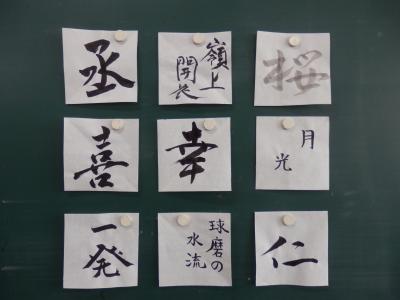 丞
嶺上
桜
喜
幸
月
光
一
発
球磨の
水流
仁